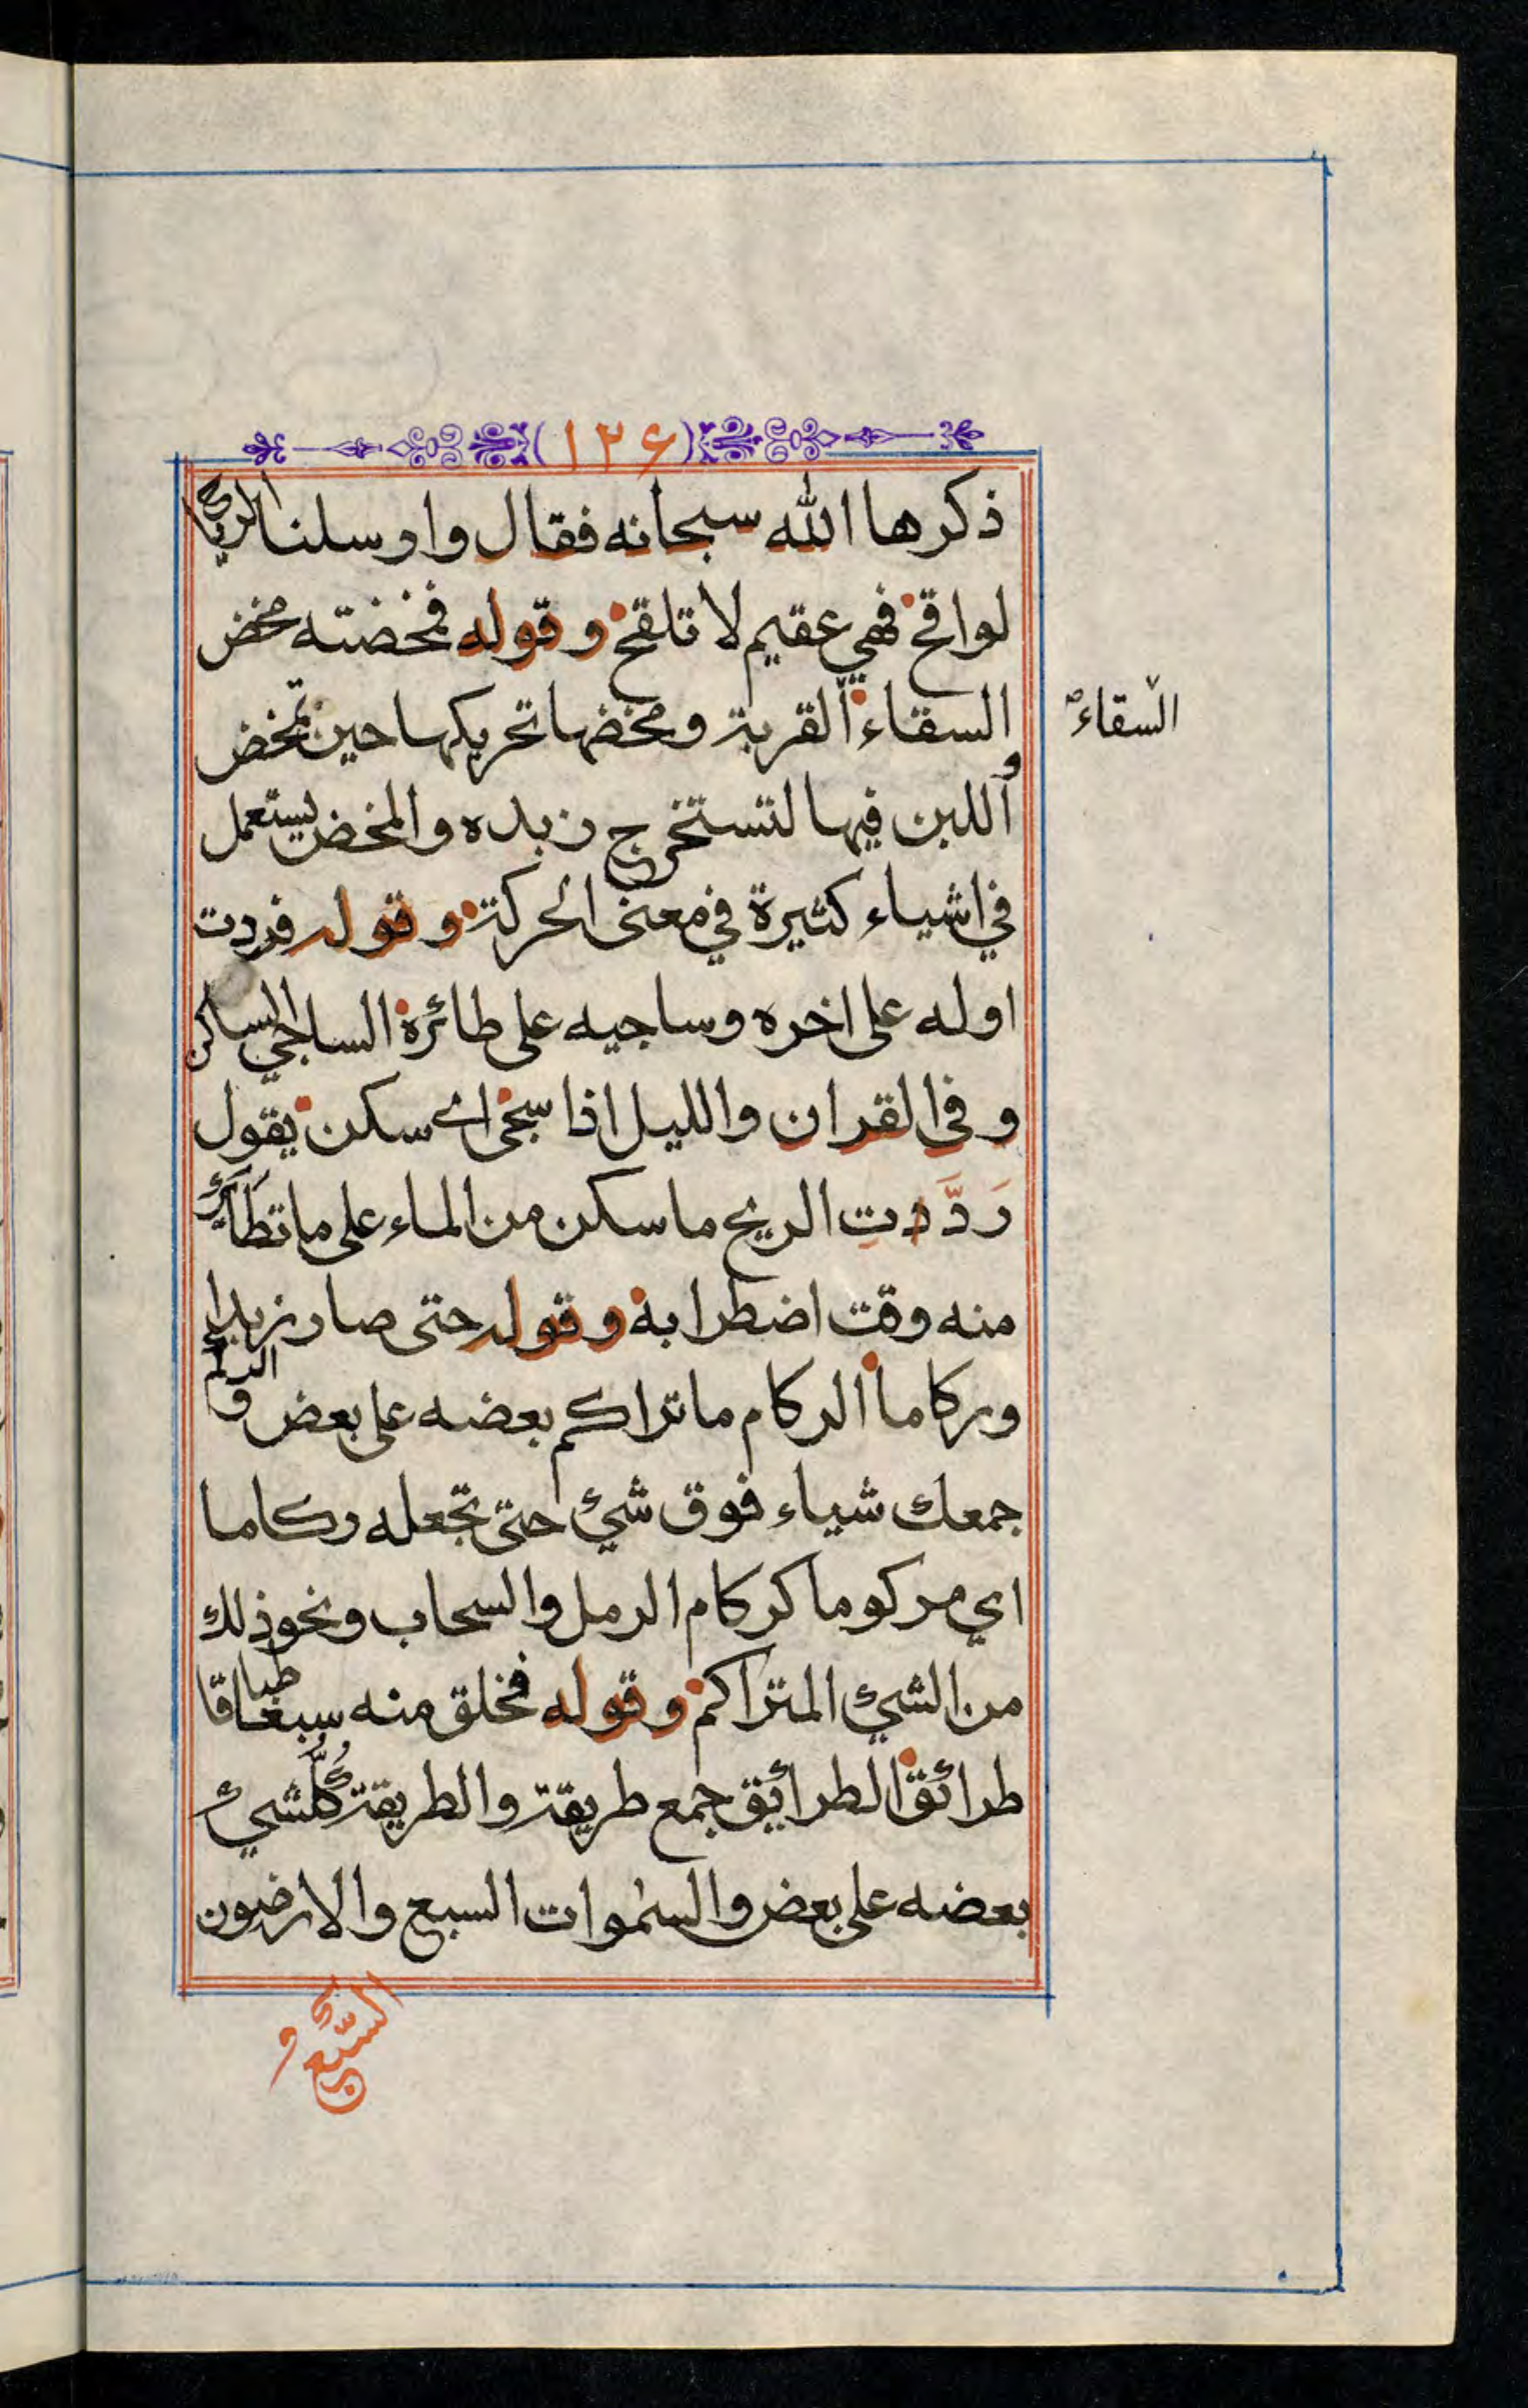 (١٢٦)
ذكرها الله سبحانه فقال وارسلنا الرياح
لواقح فهي عقيم لا تلقح وقوله فمخضته مخض
السقاء القربة ومخضها تحريكها حين تمخض
السقاء
اللبن فيها لتستخرج زبده والمخض يستعمل
في اشياء كثيرة في معنى الحركة وقوله فردت
اوله على اخره وساجيه على طائره الساجي الساكن
وفي القران والليل اذا سجى اي سكن يقول
رَدَّدت الريح ما سكن من الماء على ما تطاير
منه وقت اضطرابه وقوله حتى صار زبدا
وركاما الركام ما تراكم بعضه على بعض والركم
جمعك شياء فوق شئ حتى تجعله ركاما
اي مركوما كركام الرمل والسحاب ونحو ذلك
من الشئ المتراكم وقوله فخلق منه سبعا طباقا
طرائق الطرائق جمع طريقة والطريقة كُلُّ شيء
بعضه على بعض والسموات السبع والارضون
السبع